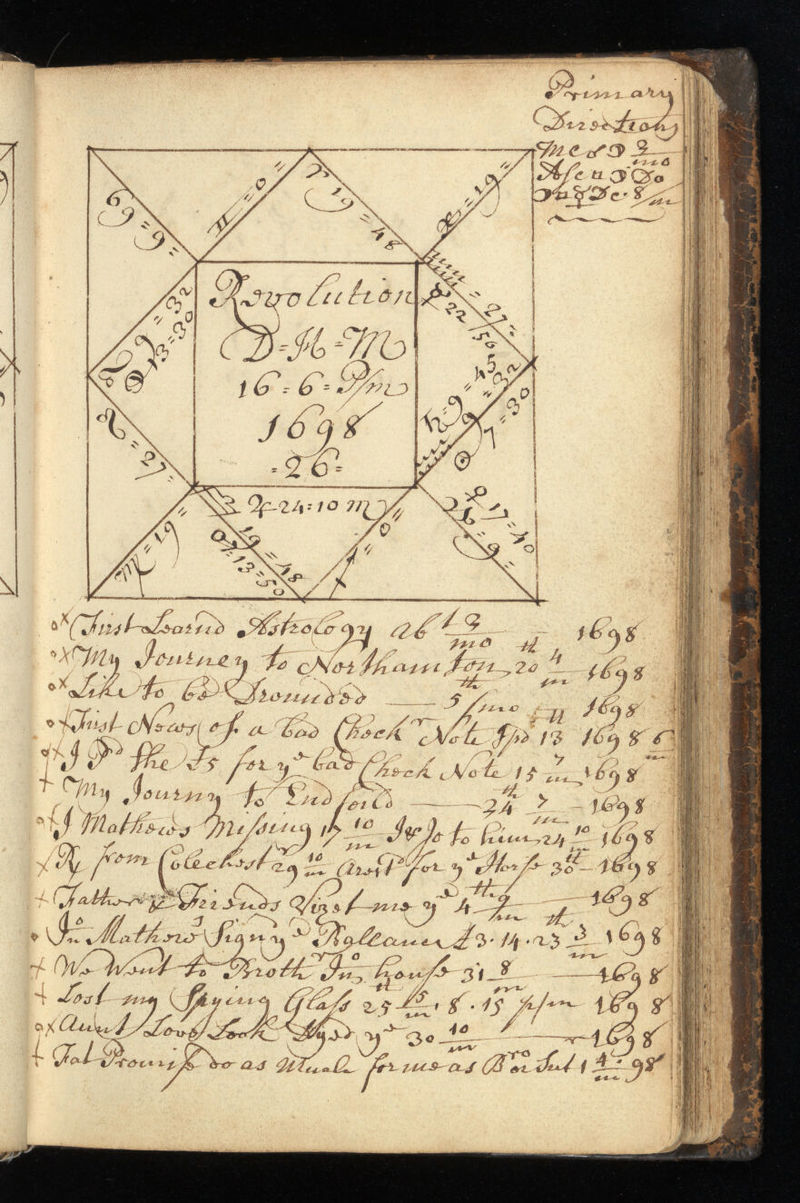 Primary
Directions
Mc ☍ ☽ 3/mo
Asc □ ☽ Do
♋ = 9 =
♊ = 0 =
♈ 19 = 48
♓ = 19 =
♒ = 27 =
☿ 22/56
♌ 9 = 32
☽ 13 = 30
Revolution
D = H = M
16 = 6 = P/m
1698
= 26 =
♄ = 9 = 45
♑ 9 = 32
☉ 7 = 30
♌ = 27 =
♃ 24 = 10 M
♍ = 19 =
♎ 19 = 48
♂ 13 = 50
♐ = 0 =
♀ 17 = 40
♏ = 9 =
First Learnd Astrology ab^t 3/mo 1698
My Journey to Northamton 20^th 4/m 1698
Like to be Drounded 5^th /mo 1698
First News of a bad Check^r Note 13^th 1698 6/m
I P^d the £5 for y^e bad Check Note 15 7/m 1698
My Journy to Endfeild 24^th 7/m 1698
J Mathews Missing 17 10/m J & Jo to him 24 10/m 1698
R from Colechest^r 29 10/m Arest^d for y^e Horse 30^th 1698
Father & Friends Vizet me y^e 4^th 9/m 1698
Jn^o Mathews Sign y^e Rellance £3 · 14 · 23^th 3/m 1698
We Went to Broth^r Jn^o house 31 8/m 1698
Lost my Spying Glass 25^th 5/m · 8 · 15 p/m 1698
Aunt Love Look Dyed y^e 30 10/m 1698
Fat Promiss do as Much for me as B^ro or Sist 1 4/m 98